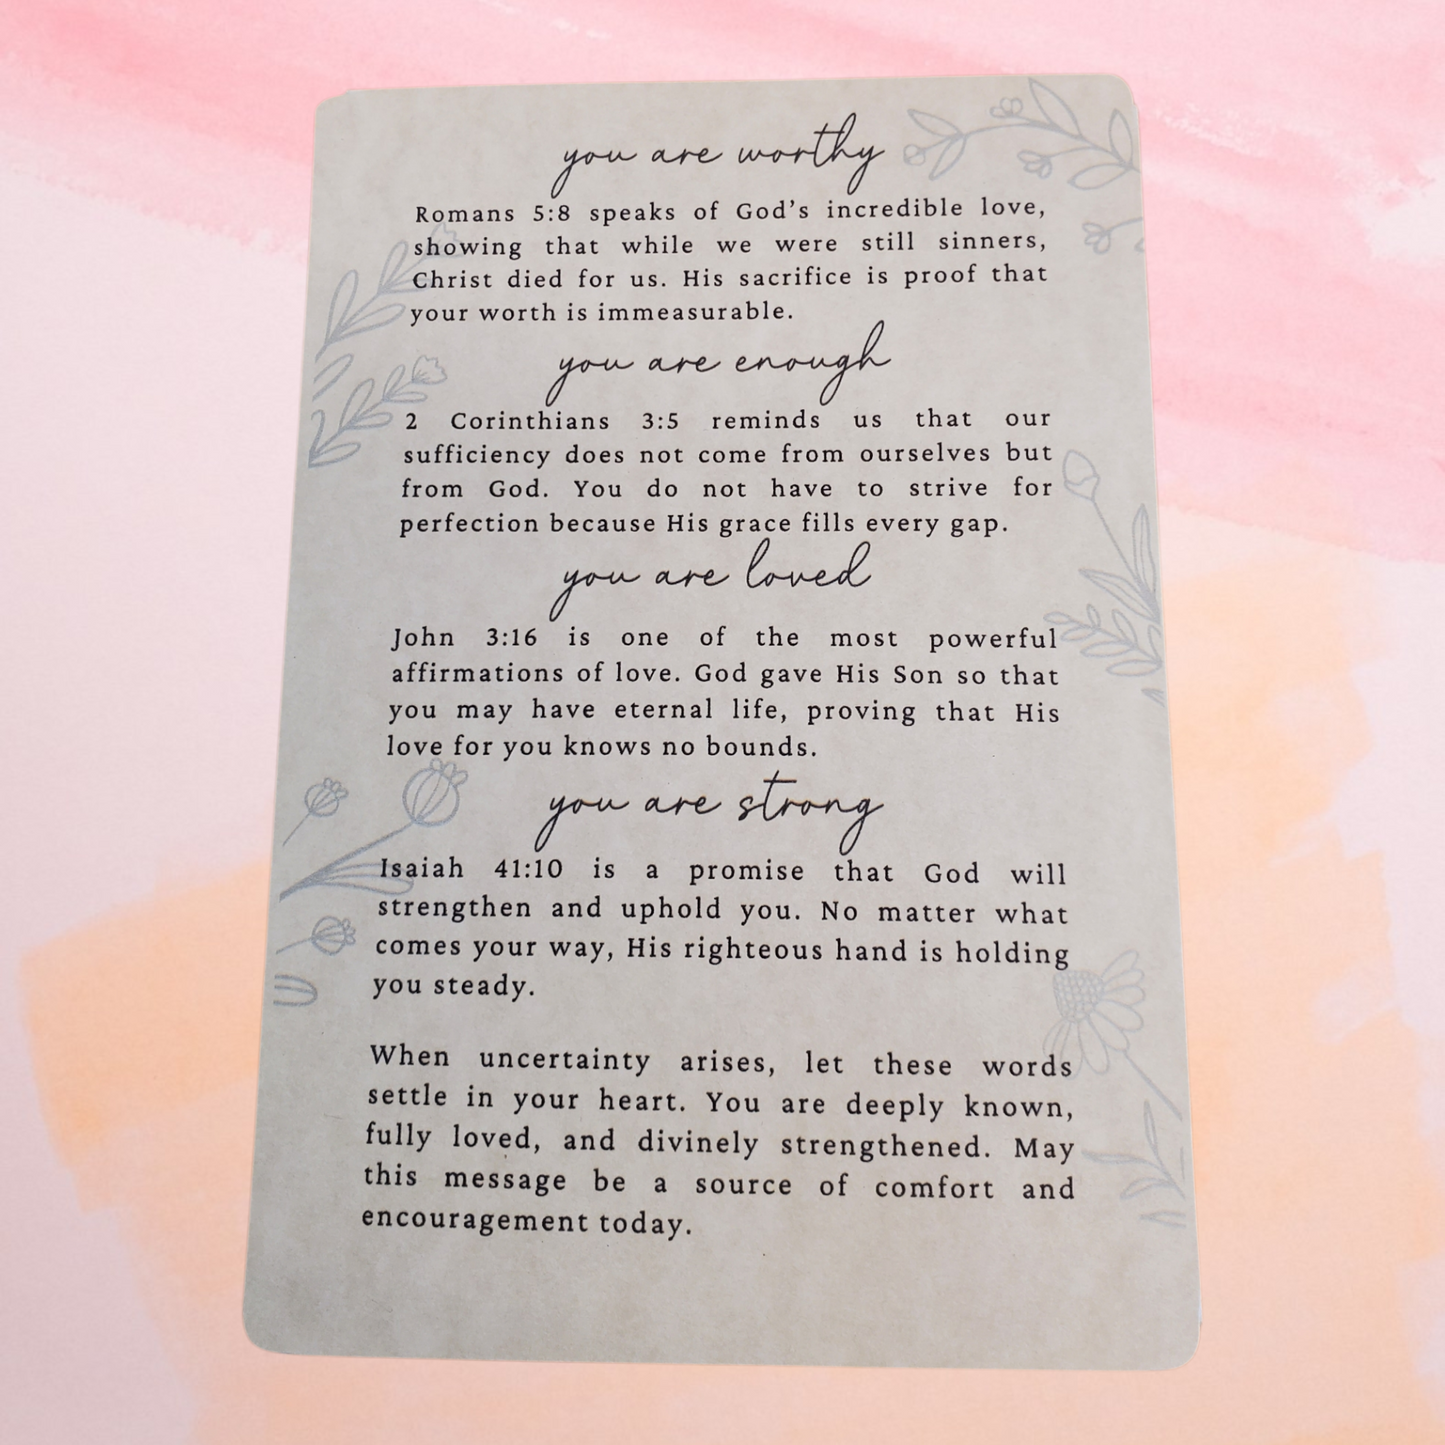 you are worthy
Romans 5:8 speaks of God's incredible love,
showing that while we were still sinners,
Christ died for us. His sacrifice is proof that
your worth is immeasurable.
you are enough
2 Corinthians 3:5 reminds us that our
sufficiency does not come from ourselves but
from God. You do not have to strive for
perfection because His grace fills every gap.
you are loved
John 3:16 is one of the most powerful
affirmations of love. God gave His Son so that
you may have eternal life, proving that His
love for you knows no bounds.
you are strong
Isaiah 41:10 is a promise that God will
strengthen and uphold you. No matter what
comes your way, His righteous hand is holding
you steady.
When uncertainty arises, let these words
settle in your heart. You are deeply known,
fully loved, and divinely strengthened. May
this message be a source of comfort and
encouragement today.